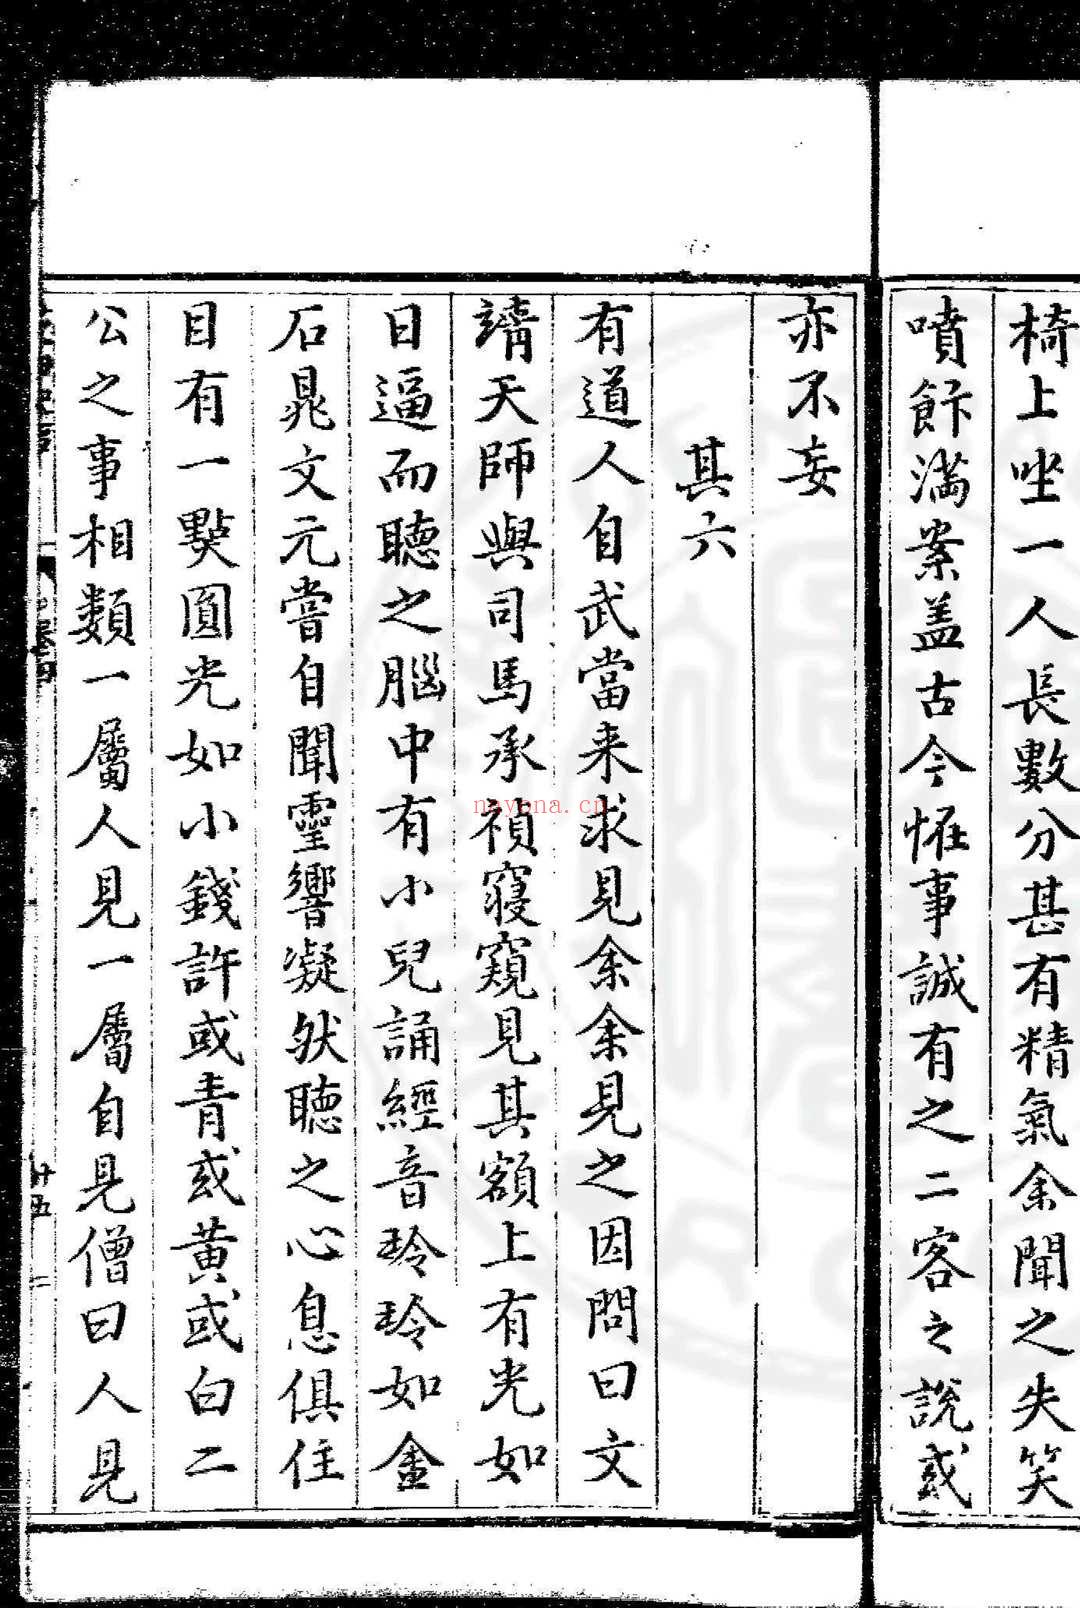 椅上坐一人長數分甚有精氣余聞之失笑
噴飰滿案盖古今恠事誠有之二客之說或
亦不妄
其六
有道人自武當来求見余余見之因問曰文
靖天師與司馬承禎寢窺見其額上有光如
日逼而聽之腦中有小兒誦經音玲玲如金
石晁文元嘗自聞靈響凝然聽之心息俱住
目有一㸃圓光如小錢許或青或黄或白二
公之事相類一屬人見一屬自見僧曰人見
nayona.cn